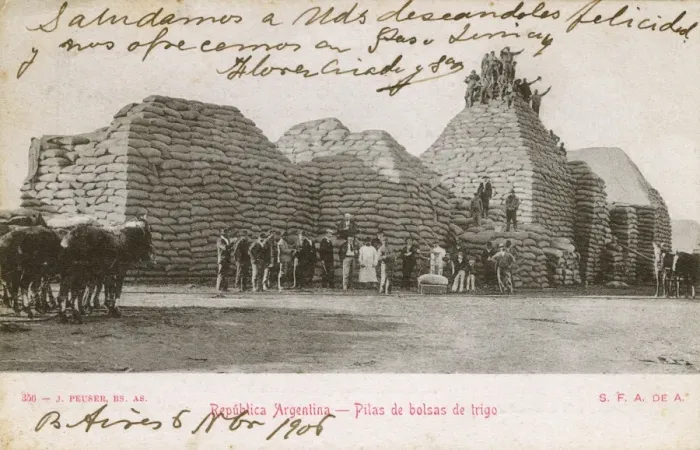 Saludamos a Uds deseandoles felicidad
y nos ofrecemos en
Flores Criado y
356 — J. PEUSER, BS. AS.
República Argentina — Pilas de bolsas de trigo
S. F. A. DE A.
B Aires 6 Nbr 1906